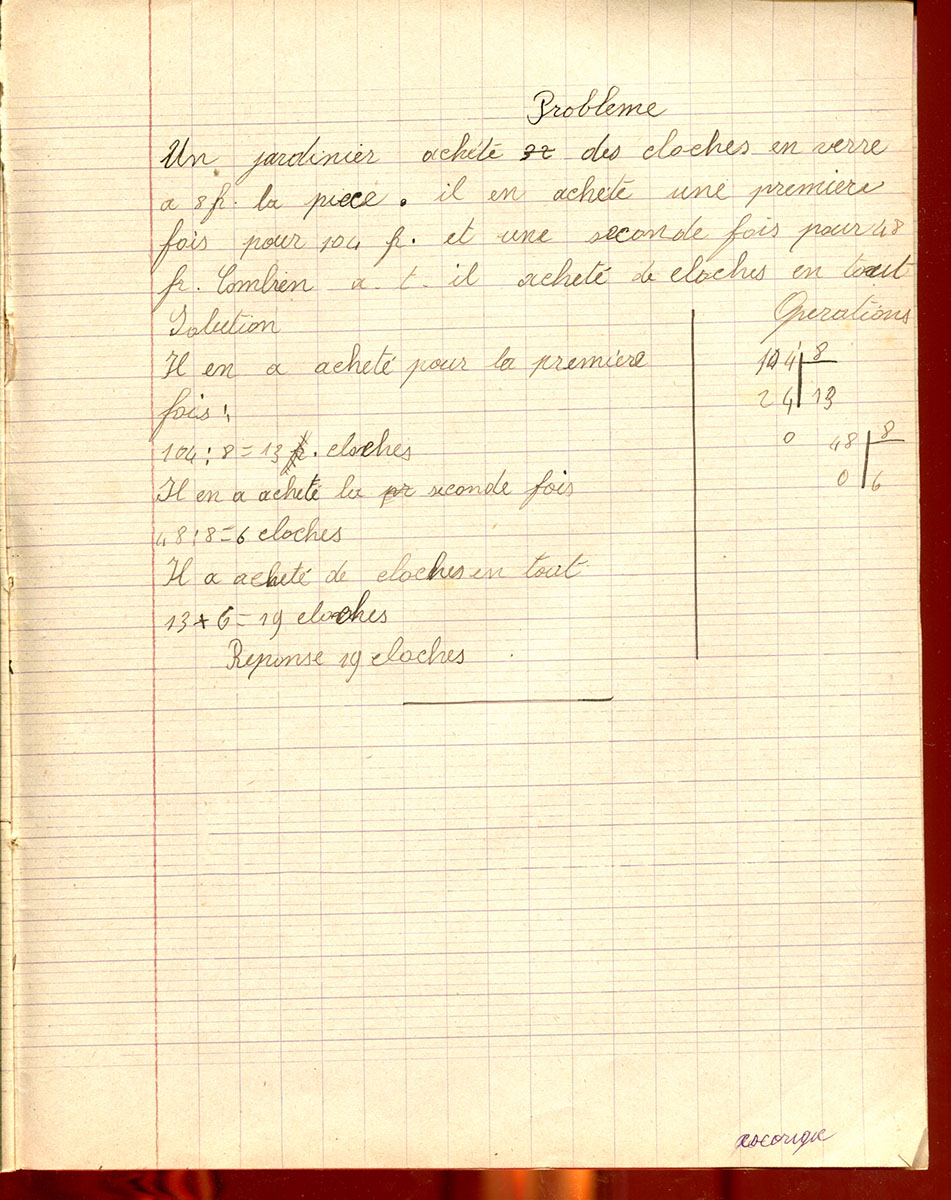 Probleme
Un jardinier acheté des cloches en verre
a 8 fr. la piece. il en acheté une premiere
fois pour 104 fr. et une seconde fois pour 48
fr. Combien a-t-il acheté de cloches en tout
Solution
Operations
Il en a acheté pour la premiere
fois :
104 : 8 = 13 cloches
Il en a acheté la seconde fois
48 : 8 = 6 cloches
Il a acheté de cloches en tout
13 + 6 = 19 cloches
Reponse 19 cloches
104 8
24 13
0
48 8
0 6